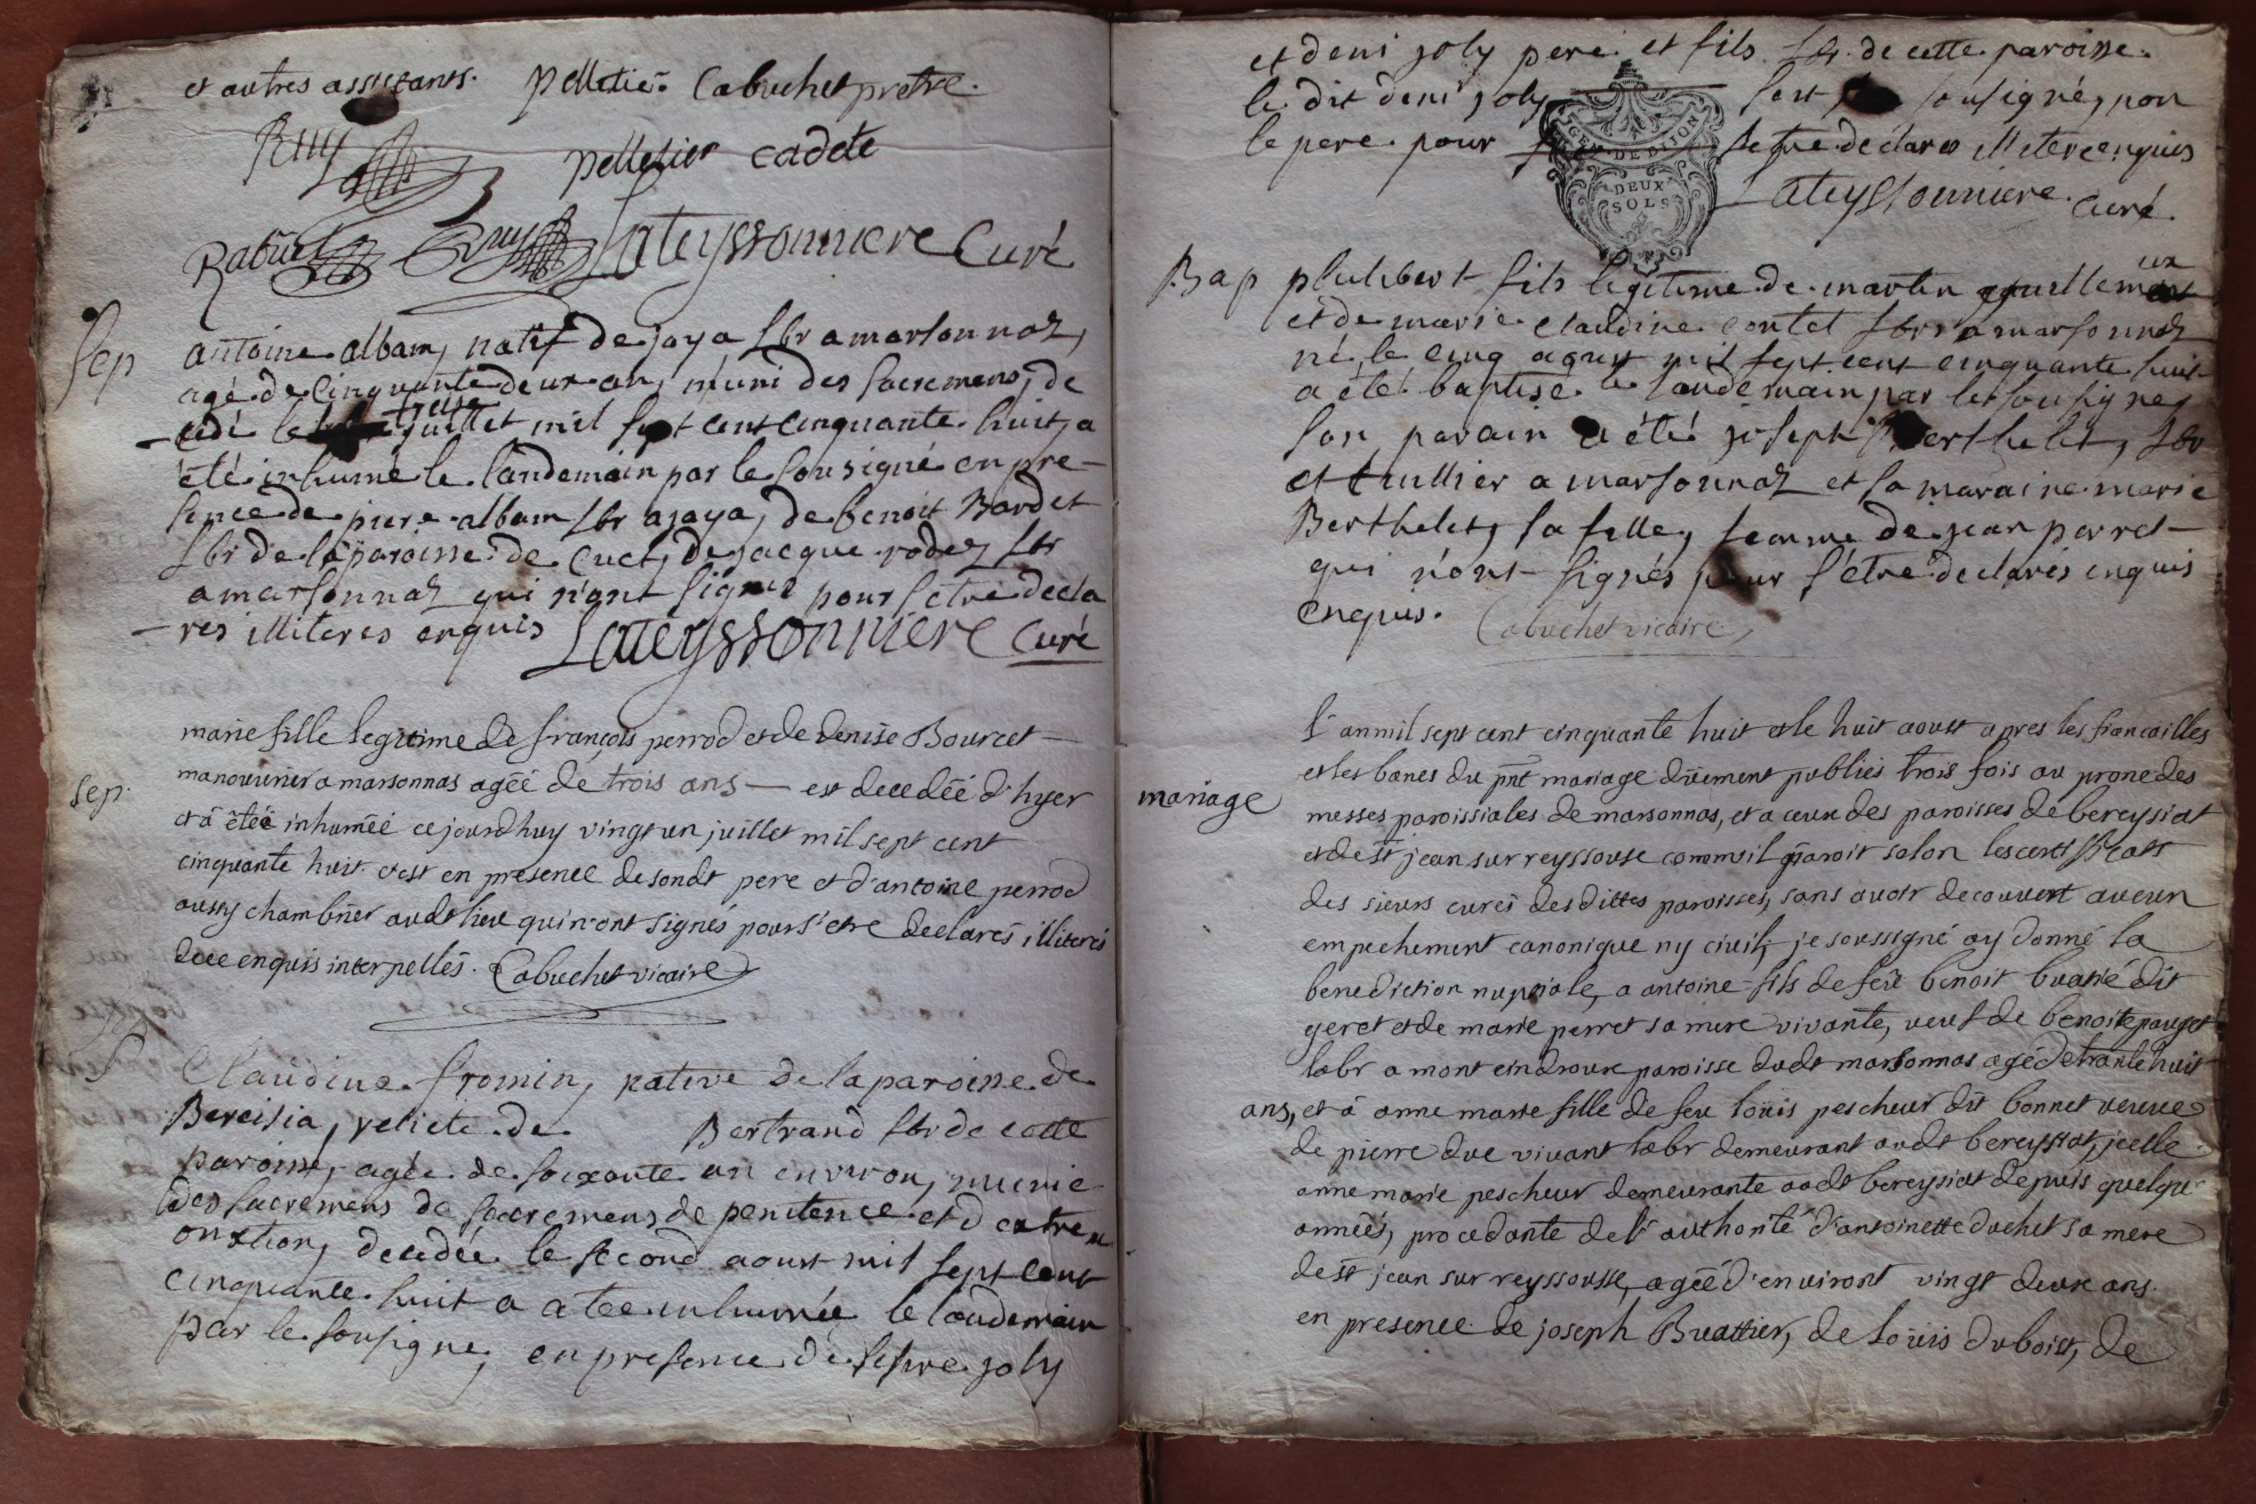 et autres assistants. pelletier Cabuchet pretre.
Ruy
pelletier cadete
Rabuel Ruy Lateyssonniere Curé
Sep antoine albam, natif de jaya lbr a marsonnaz,
agé de Cinquante deux an, muni des sacremens, de
cedé le treise juillet mil sept cent cinquante huit, a
été inhumé le landemain par le sousigné en pre-
sence de piere albam lbr a jaya, de benoit Bardet
lbr de la paroisse de Cuet, de jacque rodez lbr
a marsonnaz qui n'ont signé pour s'etre decla
-res illiteres enquis Lateyssonniere Curé
marie fille legitime de françois perrod et de denise Bourcet
Sep. manouvrier a marsonnas agéé de trois ans est decedéé d'hyer
et â êtéé inhuméé ce jourdhuy vingt un juillet mil sept cent
cinquante huit. c'est en presence de sondt pere et d'antoine perrod
aussy chambrier audt lieu qui n'ont signés pour s'etre declarés illiterés
de ce enquis interpellés. Cabuchet vicaire
Sep Claudine fromin, native de la paroisse de
Bereisia, relicte de Bertrand lbr de cette
paroisse, agée de soixante an environ, munie
des sacremens de sacremens de penitence et d'extrem
onxtion, decedée le second aoust mil sept cent
cinquante huit a a tee inhumée le landemain
par le sousigné, en presence de joly
et deni joly pere et fils lbr de cette paroisse.
le dit deni joly s'est sousigné, non
le pere pour s'etre declaré illitere enquis
GEN. DE DIJON
DEUX
SOLS
Lateyssonniere curé.
Bap philibert fils legitime de martin guillemaux
et de marie claudine contet lbrs a marsonnaz
né le cinq aoust mil sept cent cinquante huit
a été baptisé le landemain par le sousigné,
son parain a été joseph Berthelet, lbr
et tuillier a marsonnaz et sa maraine marie
Berthelet, sa fille, femme de jean perret
qui n'ont signés pour s'etre declarés enquis
enquis. Cabuchet vicaire
l'an mil sept cent cinquante huit et le huit aoust apres les fiancailles
et les bancs du pnt mariage dûement publiés trois fois au prone des
mariage messes paroissiales de marsonnas, et a ceux des paroisses de bereysiat
et de st jean sur reyssouse comme il paroit selon les certificats
des sieurs curés desdittes paroisses, sans avoir decouvert aucun
empechement canonique ny civil, je soussigné ay donné la
benediction nuptiale, a antoine fils de feü benoit buatié dit
geret et de marie perret sa mere vivante, veuf de benoite pauget
labr a mont eindroux paroisse dudt marsonnas agé de trante huit
ans, et â anne marie fille de feu loüis pescheur dit bonnet veuve
de pierre due vivant labr demeurant audt bereysiat, jcelle
anne marie pescheur demeurante audt bereysiat depuis quelqu
annéés, procedante de l'authorité d'antoinette duchet sa mere
de st jean sur reyssousse, agéé d'environt vingt deux ans.
en presence de joseph Buattier, de loüis duboist, de